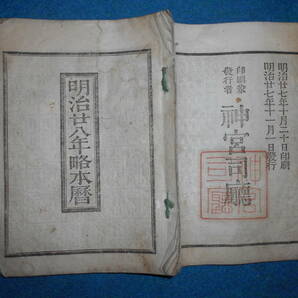 明治廿八年略本暦
明治廿七年十月二十日印刷
明治廿七年十一月一日發行
印刷兼
發行者
神宮司廳